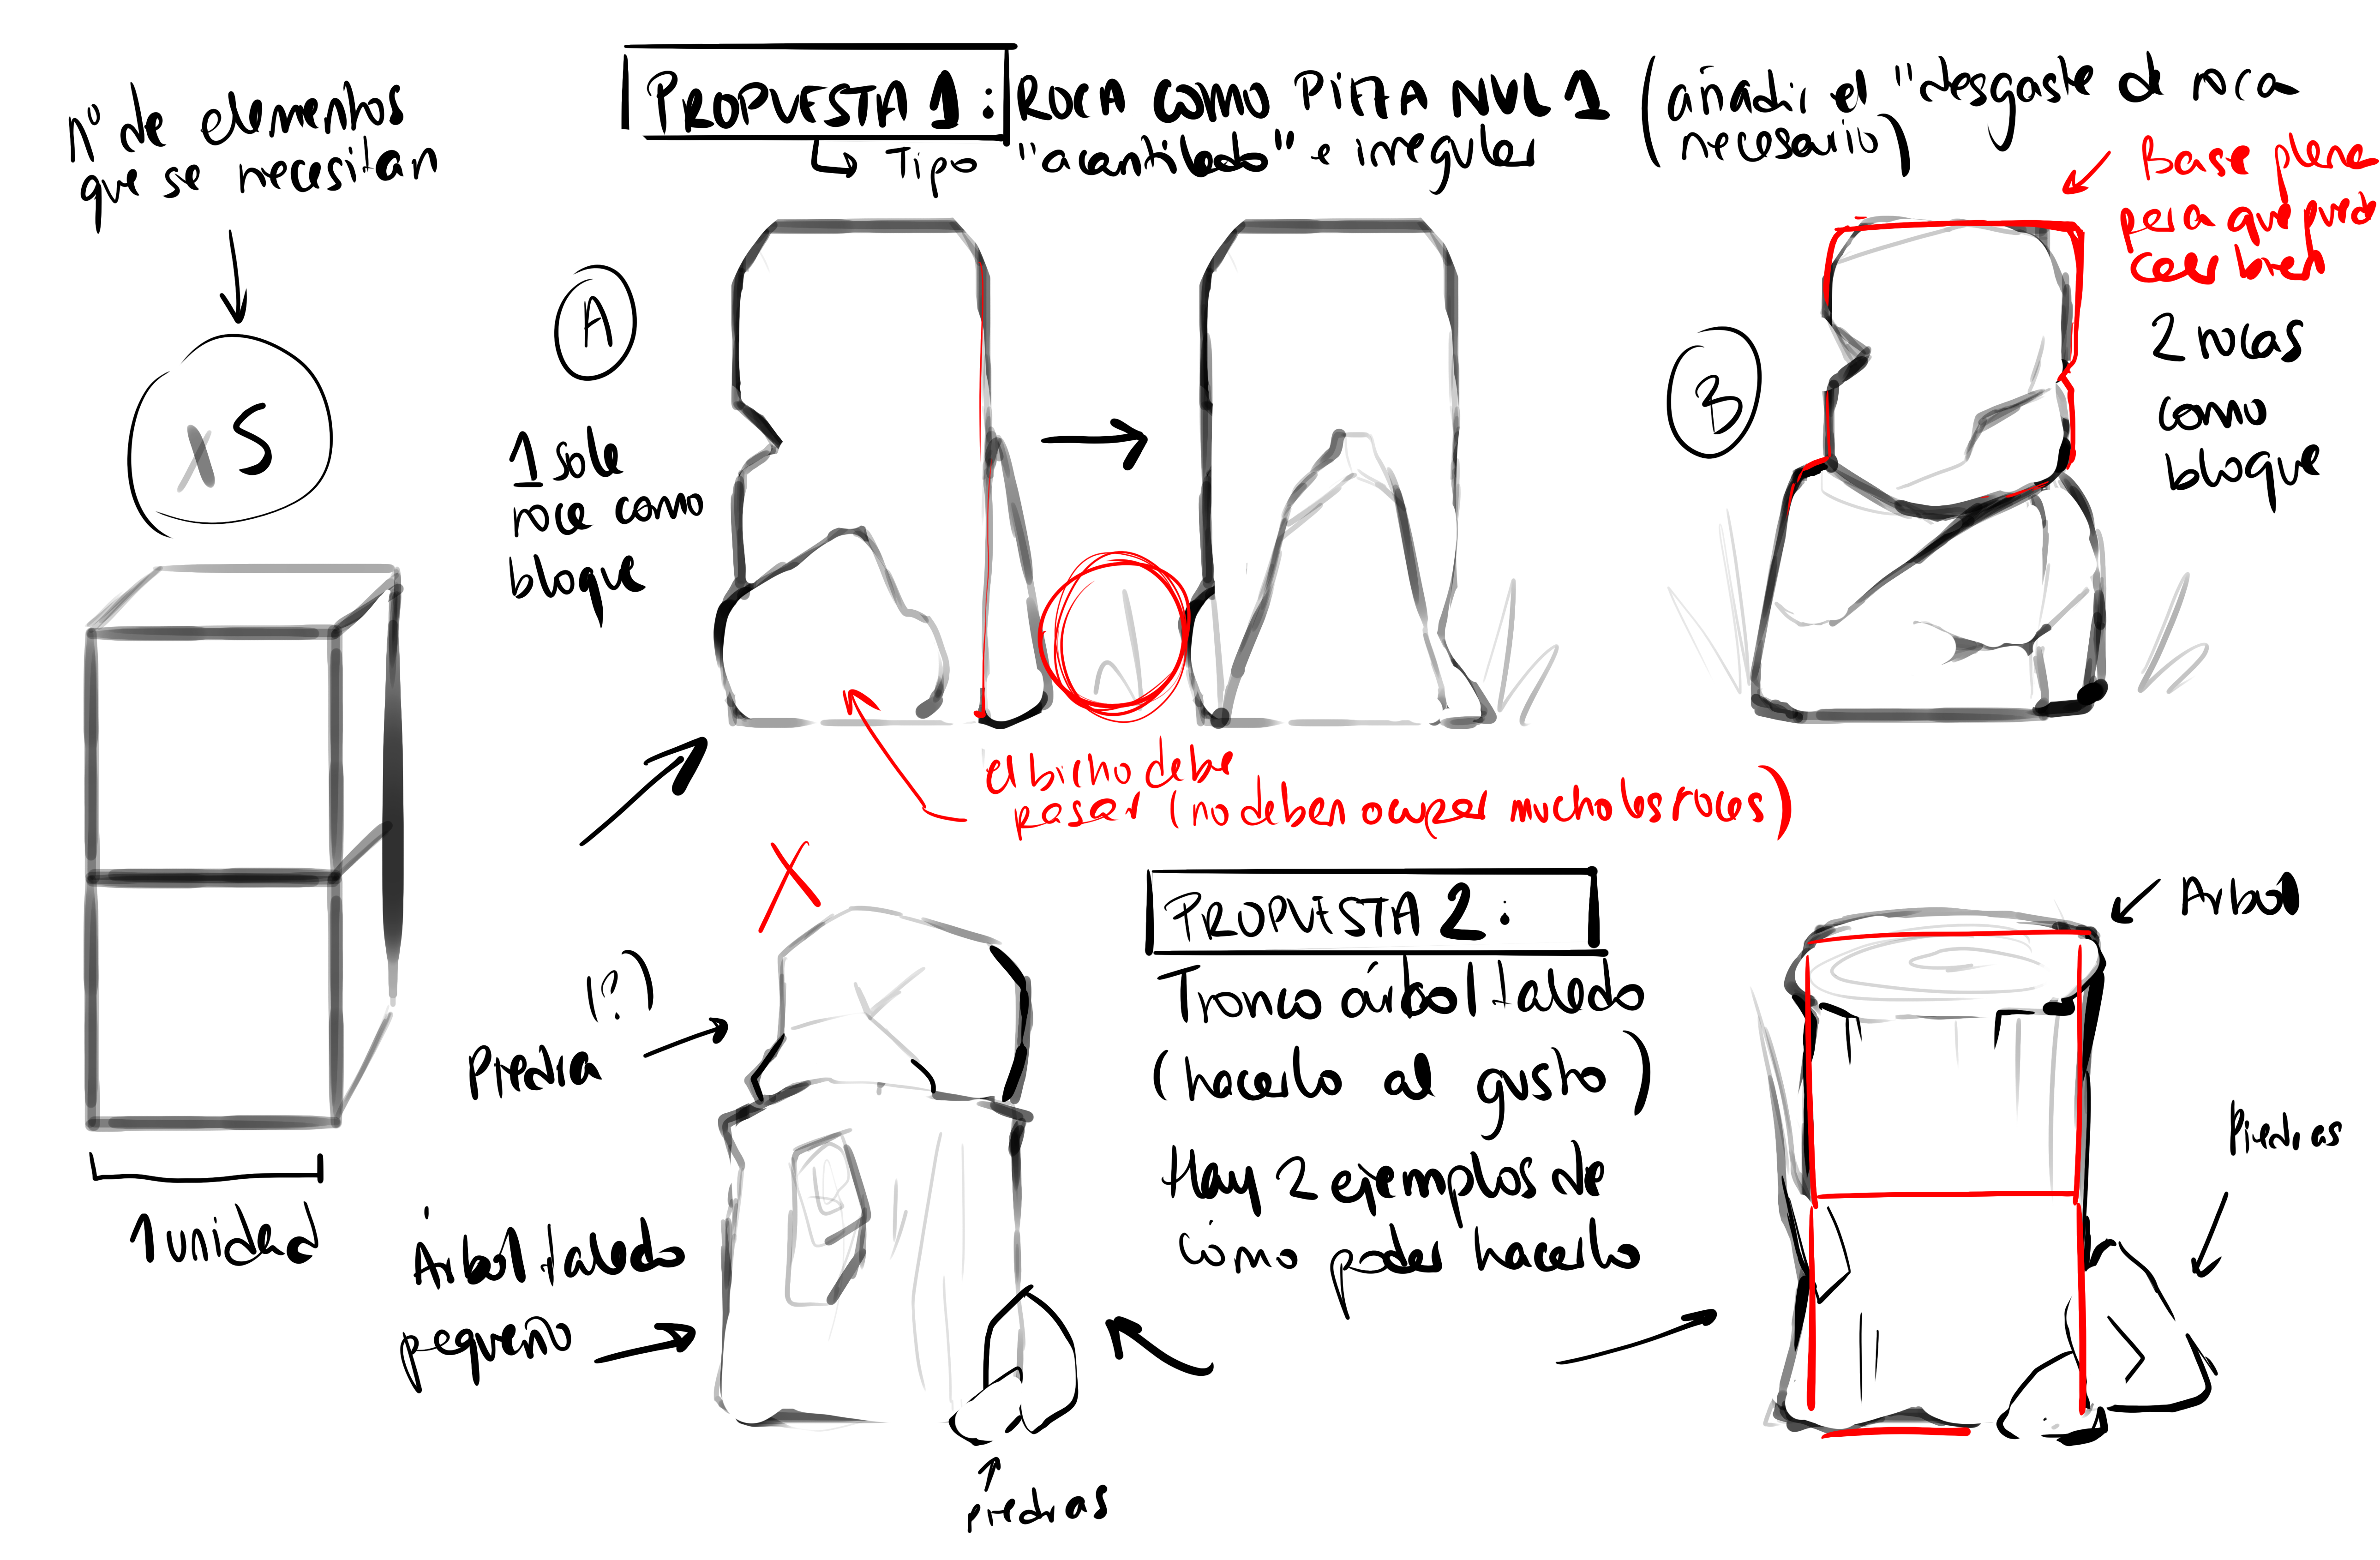 nº de elementos
que se necesitan
x5
1 unidad
PROPUESTA 1: ROCA COMO PIEZA NVL 1 (añadir el "desgaste de roca
necesario)
Tipo "acantilado" e irregular
A
1 sola
roca como
bloque
B
Base plana
para que pueda
caer bien
2 rocas
como
bloque
el bicho debe
pasar (no deben ocupar mucho las rocas)
X
(?)
Piedra
Árbol talado
pequeño
piedras
PROPUESTA 2:
Tronco árbol talado
(hacerlo al gusto)
Hay 2 ejemplos de
cómo poder hacerlo
Árbol
Piedras